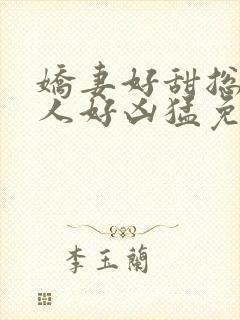 嬌妻好甜総
人好凶猛免
李玉蘭